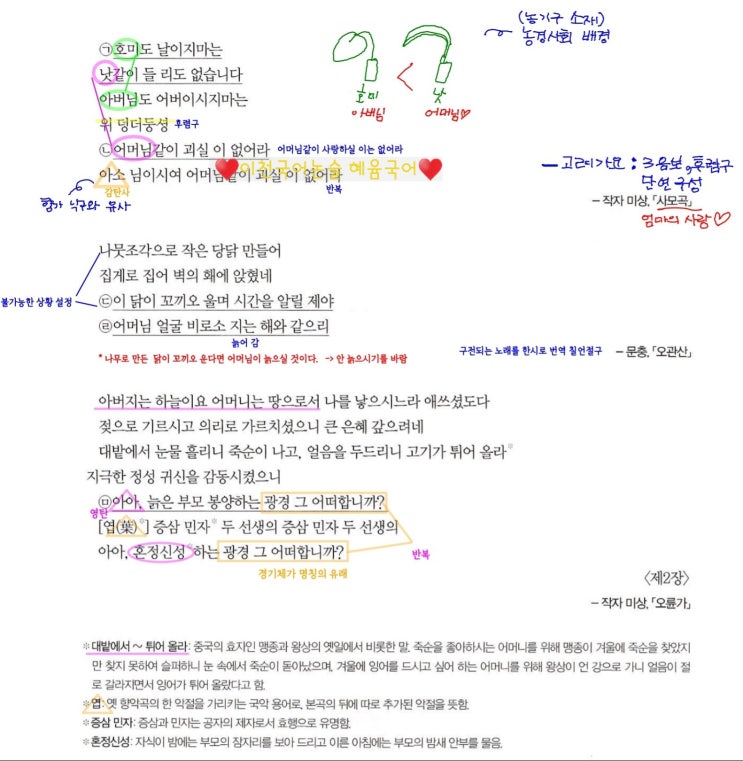 (농기구 소재)
농경사회 배경
㉠호미도 날이지마는
낫같이 들 리도 없습니다
아버님도 어버이시지마는
위 덩더둥셩 후렴구
㉡어머님같이 괴실 이 없어라 어머님같이 사랑하실 이는 없어라
아소 님이시여 어머님같이 괴실 이 없어라
감탄사
반복
향가 낙구와 유사
호미 < 낫
아버님 어머님♡
♥이천국어논술 혜윰국어♥
- 고려가요 : 3음보, 후렴구
단연 구성
- 작자 미상, 「사모곡」
엄마의 사랑♡
나뭇조각으로 작은 당닭 만들어
집게로 집어 벽의 홰에 앉혔네
불가능한 상황 설정
㉢이 닭이 꼬끼오 울며 시간을 알릴 제야
㉣어머님 얼굴 비로소 지는 해와 같으리
늙어 감
* 나무로 만든 닭이 꼬끼오 운다면 어머님이 늙으실 것이다. → 안 늙으시기를 바람
구전되는 노래를 한시로 번역 칠언절구
- 문충, 「오관산」
아버지는 하늘이요 어머니는 땅으로서 나를 낳으시느라 애쓰셨도다
젖으로 기르시고 의리로 가르치셨으니 큰 은혜 갚으려네
대밭에서 눈물 흘리니 죽순이 나고, 얼음을 두드리니 고기가 튀어 올라*
지극한 정성 귀신을 감동시켰으니
㉤아아, 늙은 부모 봉양하는 광경 그 어떠합니까?
영탄
[엽(葉)*] 증삼 민자* 두 선생의 증삼 민자 두 선생의
아아, 혼정신성*하는 광경 그 어떠합니까?
반복
경기체가 명칭의 유래
〈제2장〉
- 작자 미상, 「오륜가」
*대밭에서 ~ 튀어 올라: 중국의 효자인 맹종과 왕상의 옛일에서 비롯한 말. 죽순을 좋아하시는 어머니를 위해 맹종이 겨울에 죽순을 찾았지
만 찾지 못하여 슬퍼하니 눈 속에서 죽순이 돋아났으며, 겨울에 잉어를 드시고 싶어 하는 어머니를 위해 왕상이 언 강으로 가니 얼음이 절
로 갈라지면서 잉어가 튀어 올랐다고 함.
*엽: 옛 향악곡의 한 악절을 가리키는 국악 용어로, 본곡의 뒤에 따로 추가된 악절을 뜻함.
*증삼 민자: 증삼과 민자는 공자의 제자로서 효행으로 유명함.
*혼정신성: 자식이 밤에는 부모의 잠자리를 보아 드리고 이른 아침에는 부모의 밤새 안부를 물음.